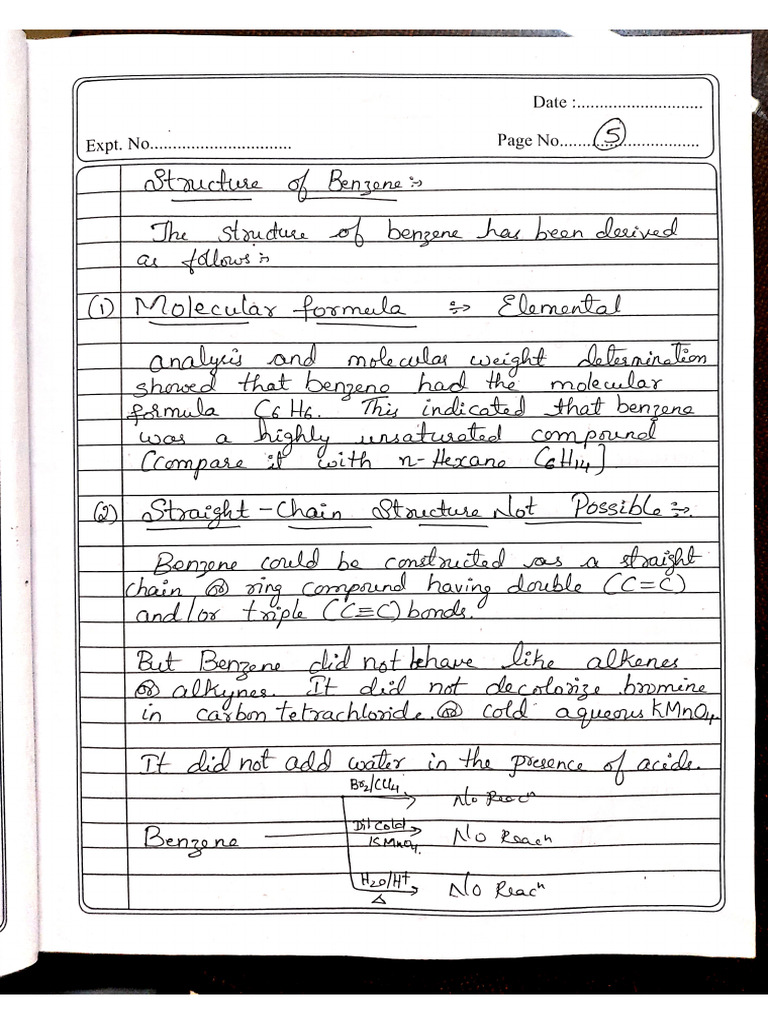 Date :............................
Expt. No............................... Page No........5....................
Structure of Benzene :-
The structure of benzene has been derived
as follows :-
(1) Molecular formula :- Elemental
analysis and molecular weight determination
showed that benzene had the molecular
formula C6H6. This indicated that benzene
was a highly unsaturated compound
(compare it with n-Hexane C6H14]
(2) Straight-Chain Structure Not Possible :-
Benzene could be constructed as a straight
chain or ring compound having double (C=C)
and/or triple (C≡C) bonds.
But Benzene did not behave like alkenes
or alkynes. It did not decolorize bromine
in carbon tetrachloride. or cold aqueous KMnO4.
It did not add water in the presence of acids.
Br2/CCl4 No Reacn
Benzene Dil cold KMnO4. No Reacn
H2O/H+ Δ No Reacn